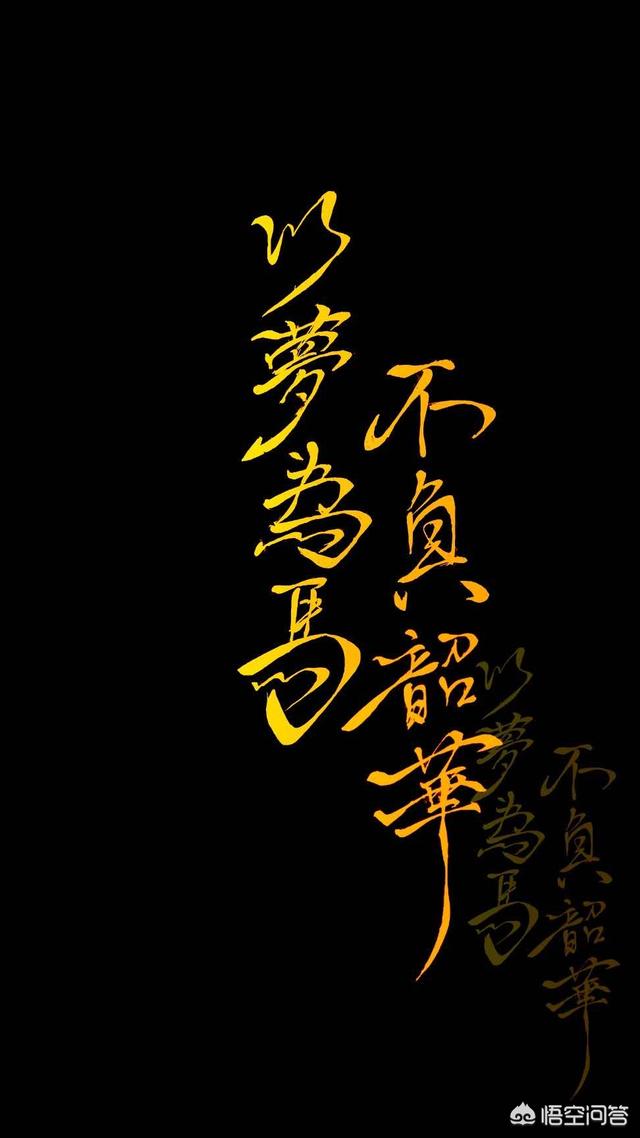 以夢為馬
不負韶華
以夢為馬
不負韶華
悟空问答